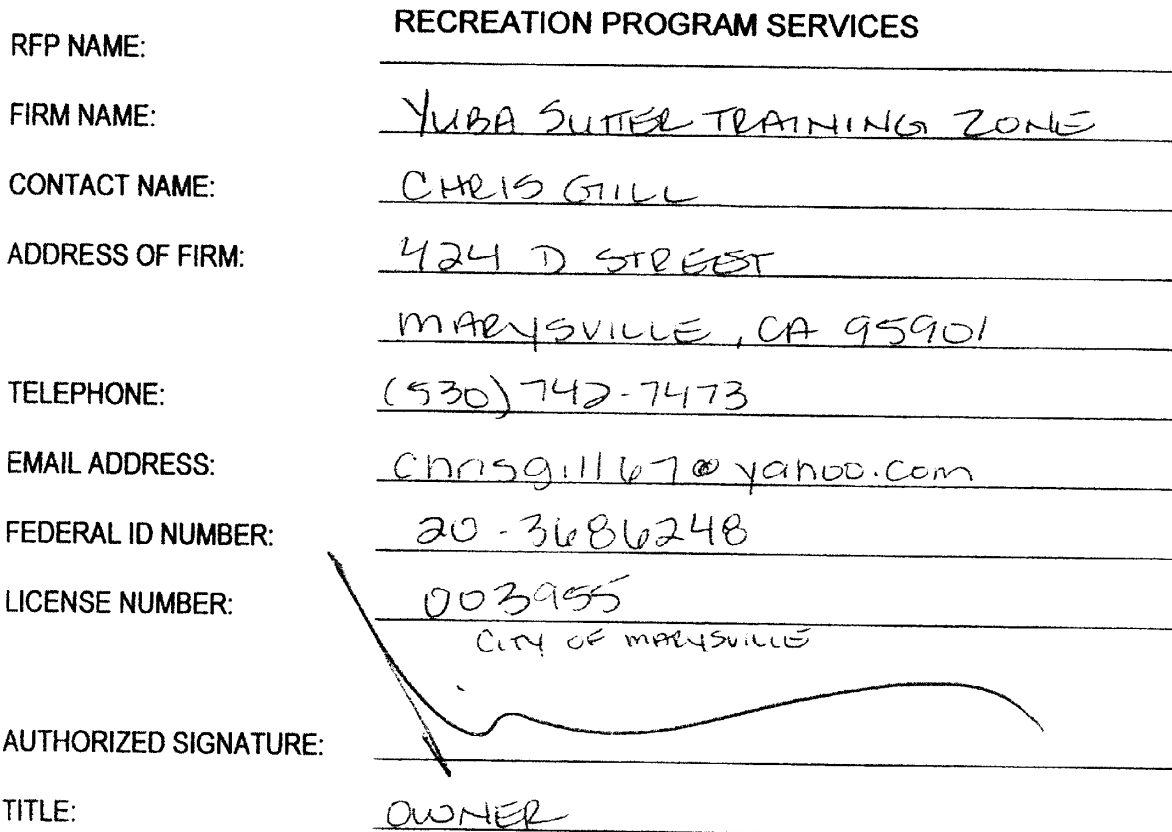 RFP NAME: RECREATION PROGRAM SERVICES
FIRM NAME: YUBA SUTTER TRAINING ZONE
CONTACT NAME: CHRIS GILL
ADDRESS OF FIRM: 424 D STREEST
MARYSVILLE, CA 95901
TELEPHONE: (530) 742-7473
EMAIL ADDRESS: Chrisgill67@yahoo.com
FEDERAL ID NUMBER: 20-3686248
LICENSE NUMBER: 003955
CITY OF MARYSVILLE
AUTHORIZED SIGNATURE:
TITLE: OWNER